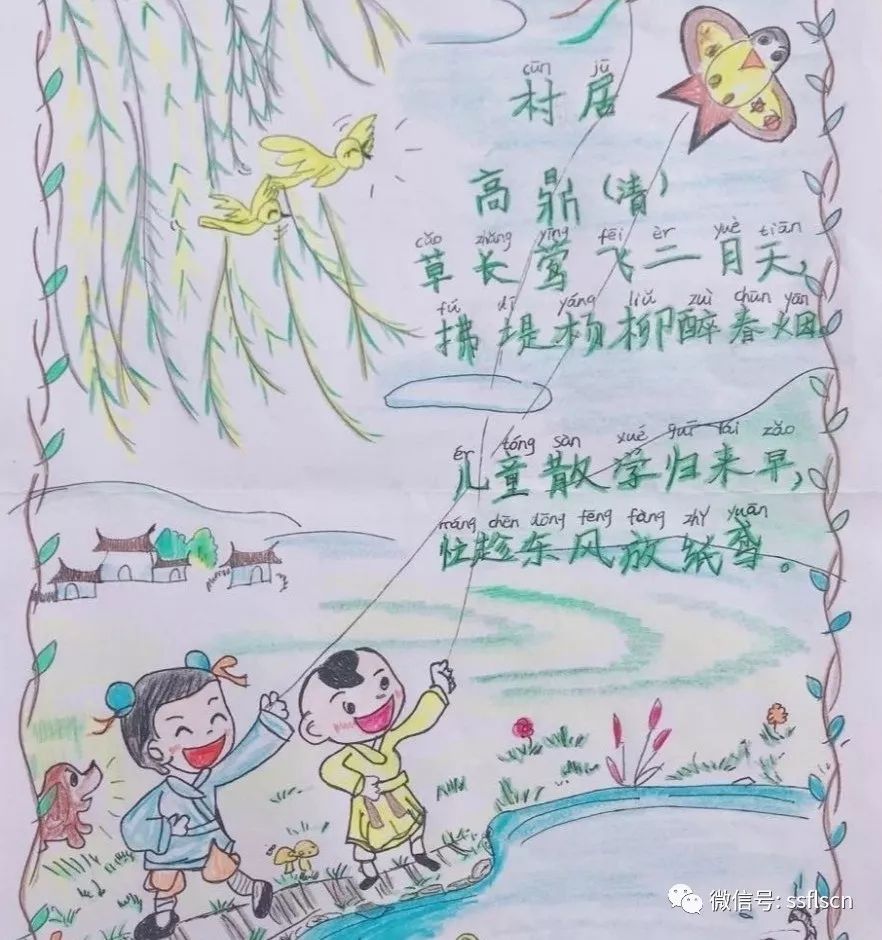 cūn jū
村居
高鼎(清)
cǎo zhǎng yīng fēi èr yuè tiān
草长莺飞二月天,
fú dī yáng liǔ zuì chūn yān
拂堤杨柳醉春烟。
ér tóng sàn xué guī lái zǎo
儿童散学归来早,
máng chèn dōng fēng fàng zhǐ yuān
忙趁东风放纸鸢。
微信号: ssflscn